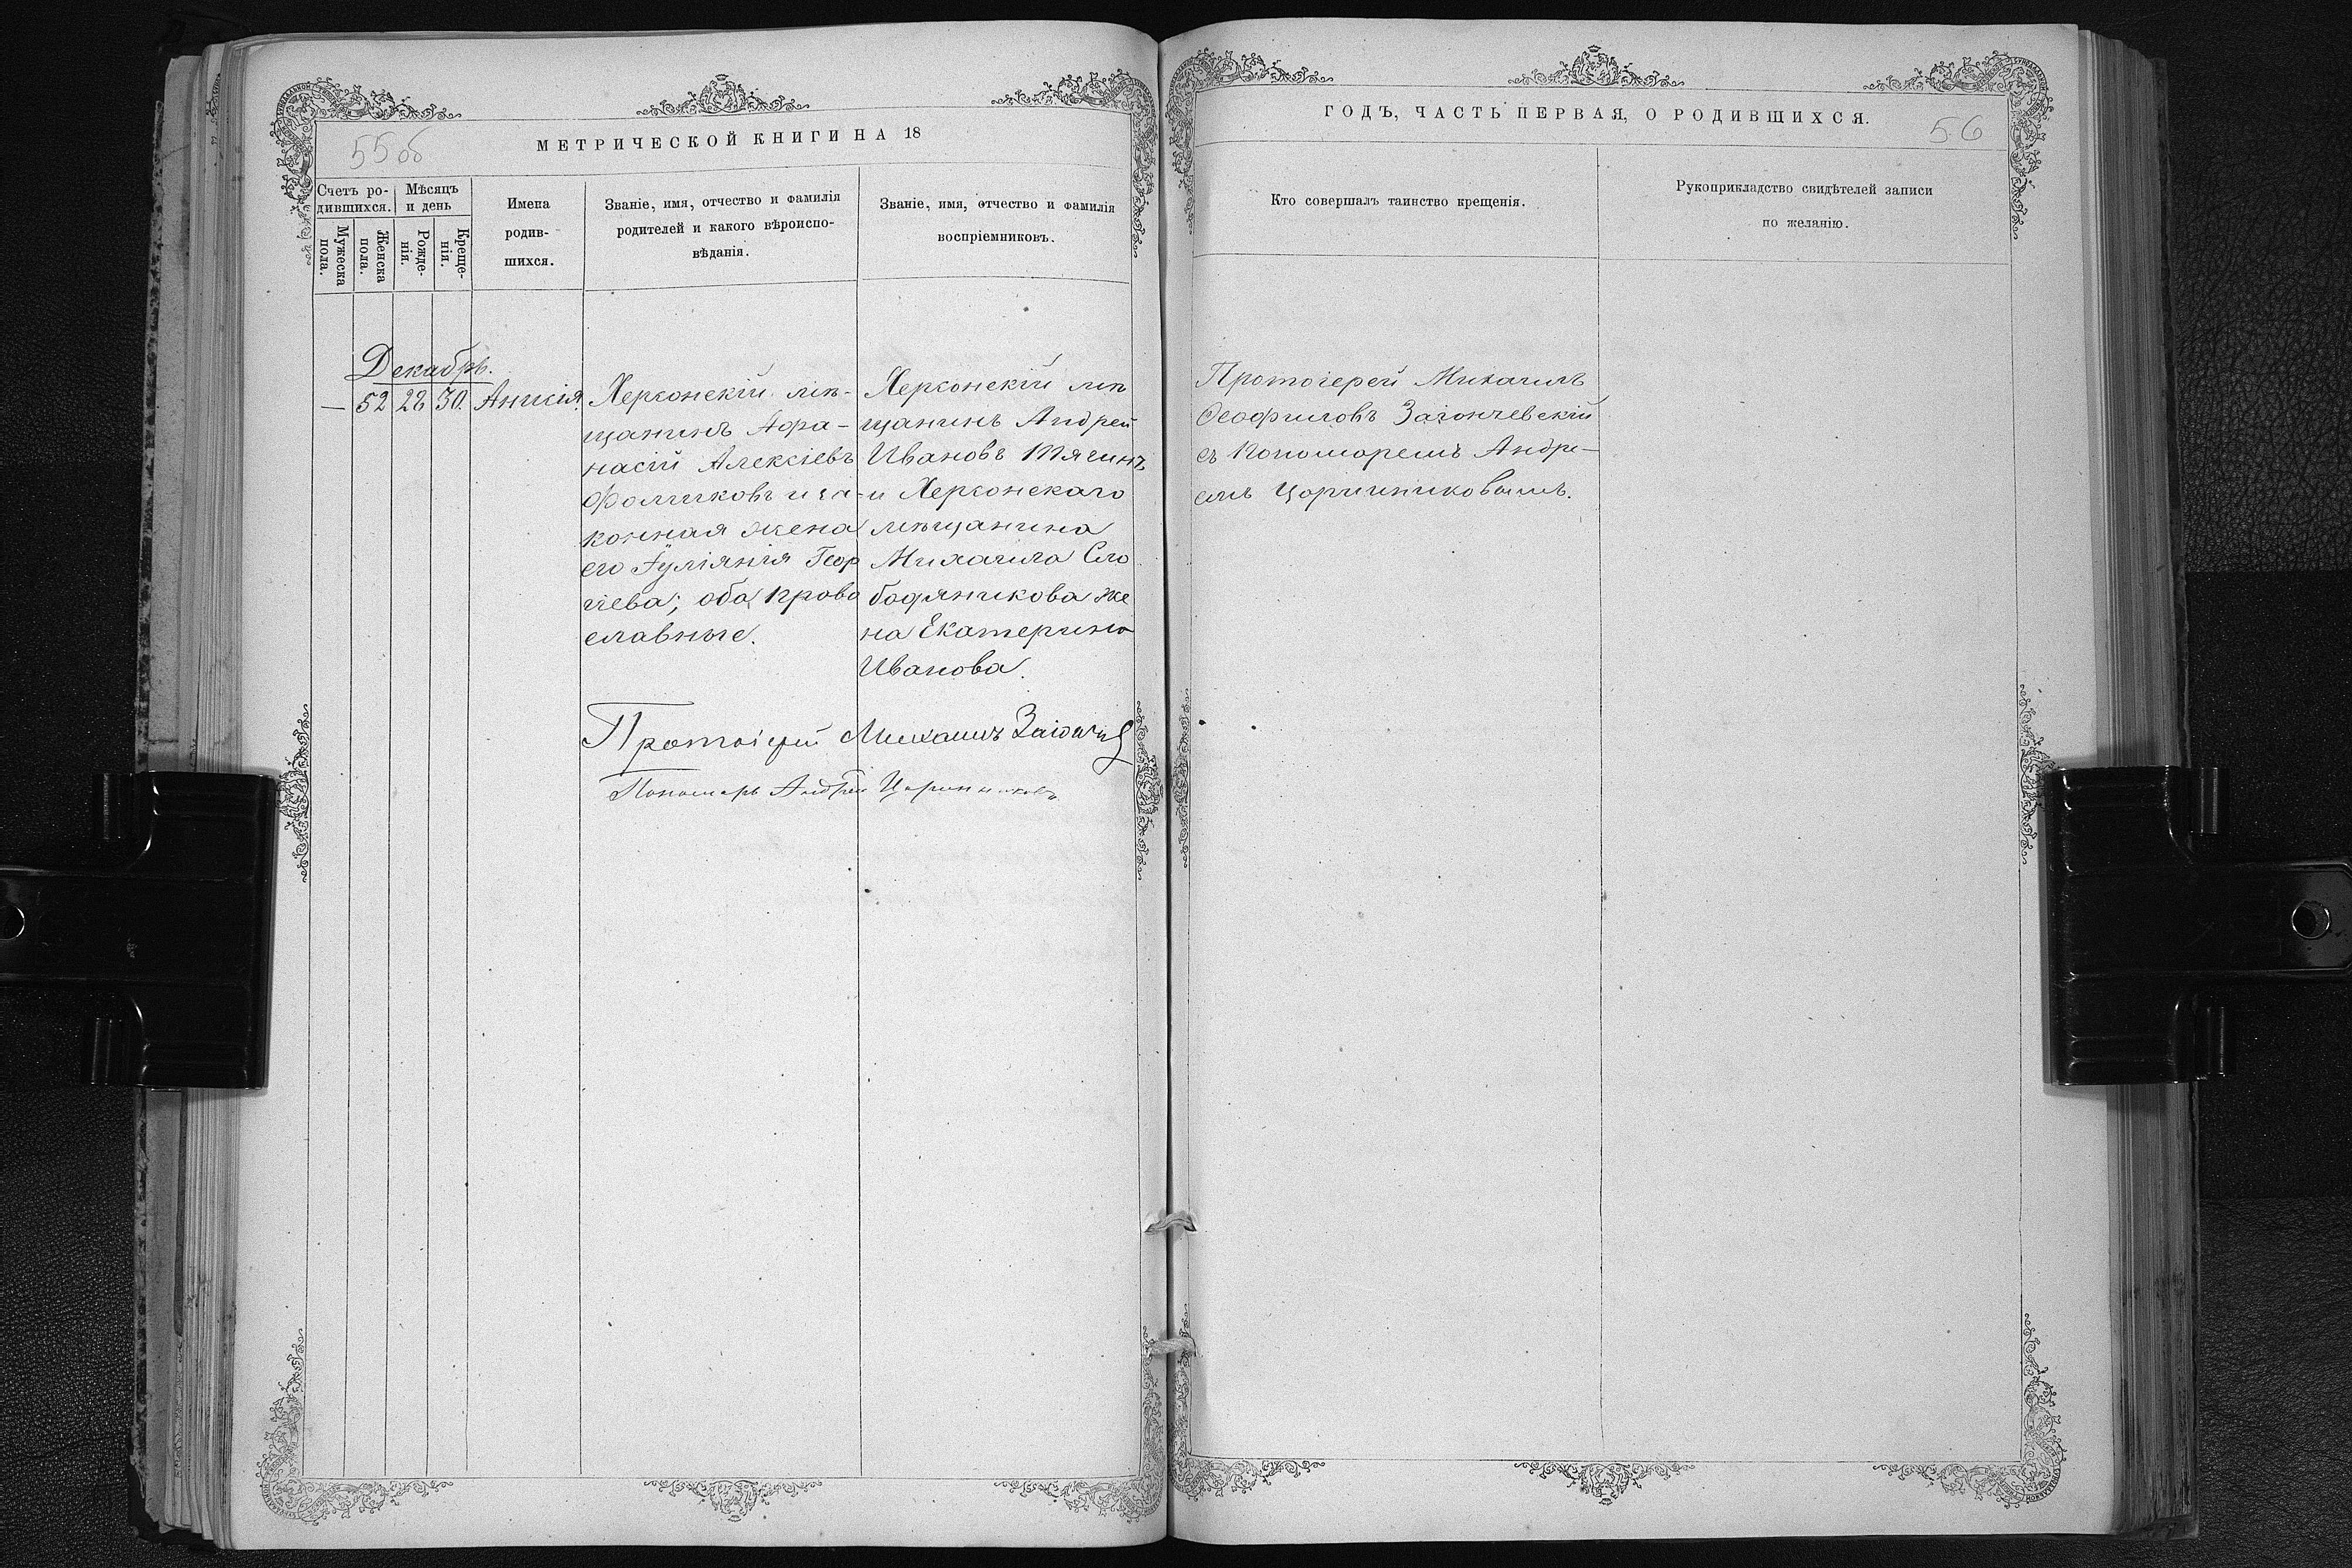 55 об
МЕТРИЧЕСКОЙ КНИГИ НА 18
Счетъ ро-
дившихся.
Мужеска
пола.
Женска
пола.
Мѣсяцъ
и день
Рожде-
нія.
Креще-
нія.
Имена
родив-
шихся.
Званіе, имя, отчество и фамилія
родителей и какого вѣроиспо-
вѣданія.
Званіе, имя, отчество и фамилія
воспріемниковъ.
Декабрь.
— 52 28 30. Анисія.
Херсонскій мѣ-
щанинъ Афа-
насій Алексіевъ
Фомиковъ и за-
конная жена
его Іуліянія Геор
гіева; оба право
славные.
Херсонскій мѣ
щанинъ Андрей
Ивановъ Тягинъ
и Херсонскаго
мѣщанина
Михаила Сло
бодяникова же
на Екатерина
Иванова.
Протоіерей Михаилъ
Пономарь Андрей Царинниковъ
ГОДЪ, ЧАСТЬ ПЕРВАЯ, О РОДИВШИХСЯ.
56
Кто совершалъ таинство крещенія.
Рукоприкладство свидѣтелей записи
по желанію.
Протоіерей Михаилъ
Феофиловъ Заіончевскій
съ Пономаремъ Андре-
емъ Царинниковымъ.